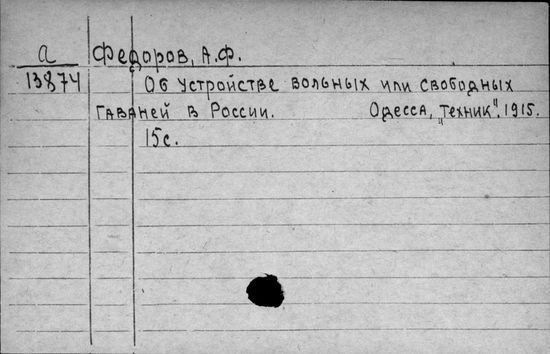 а Федоров, А.Ф.
13874 Об устройстве вольных или свободных
гаваней в России. Одесса, "Техник", 1915.
15с.